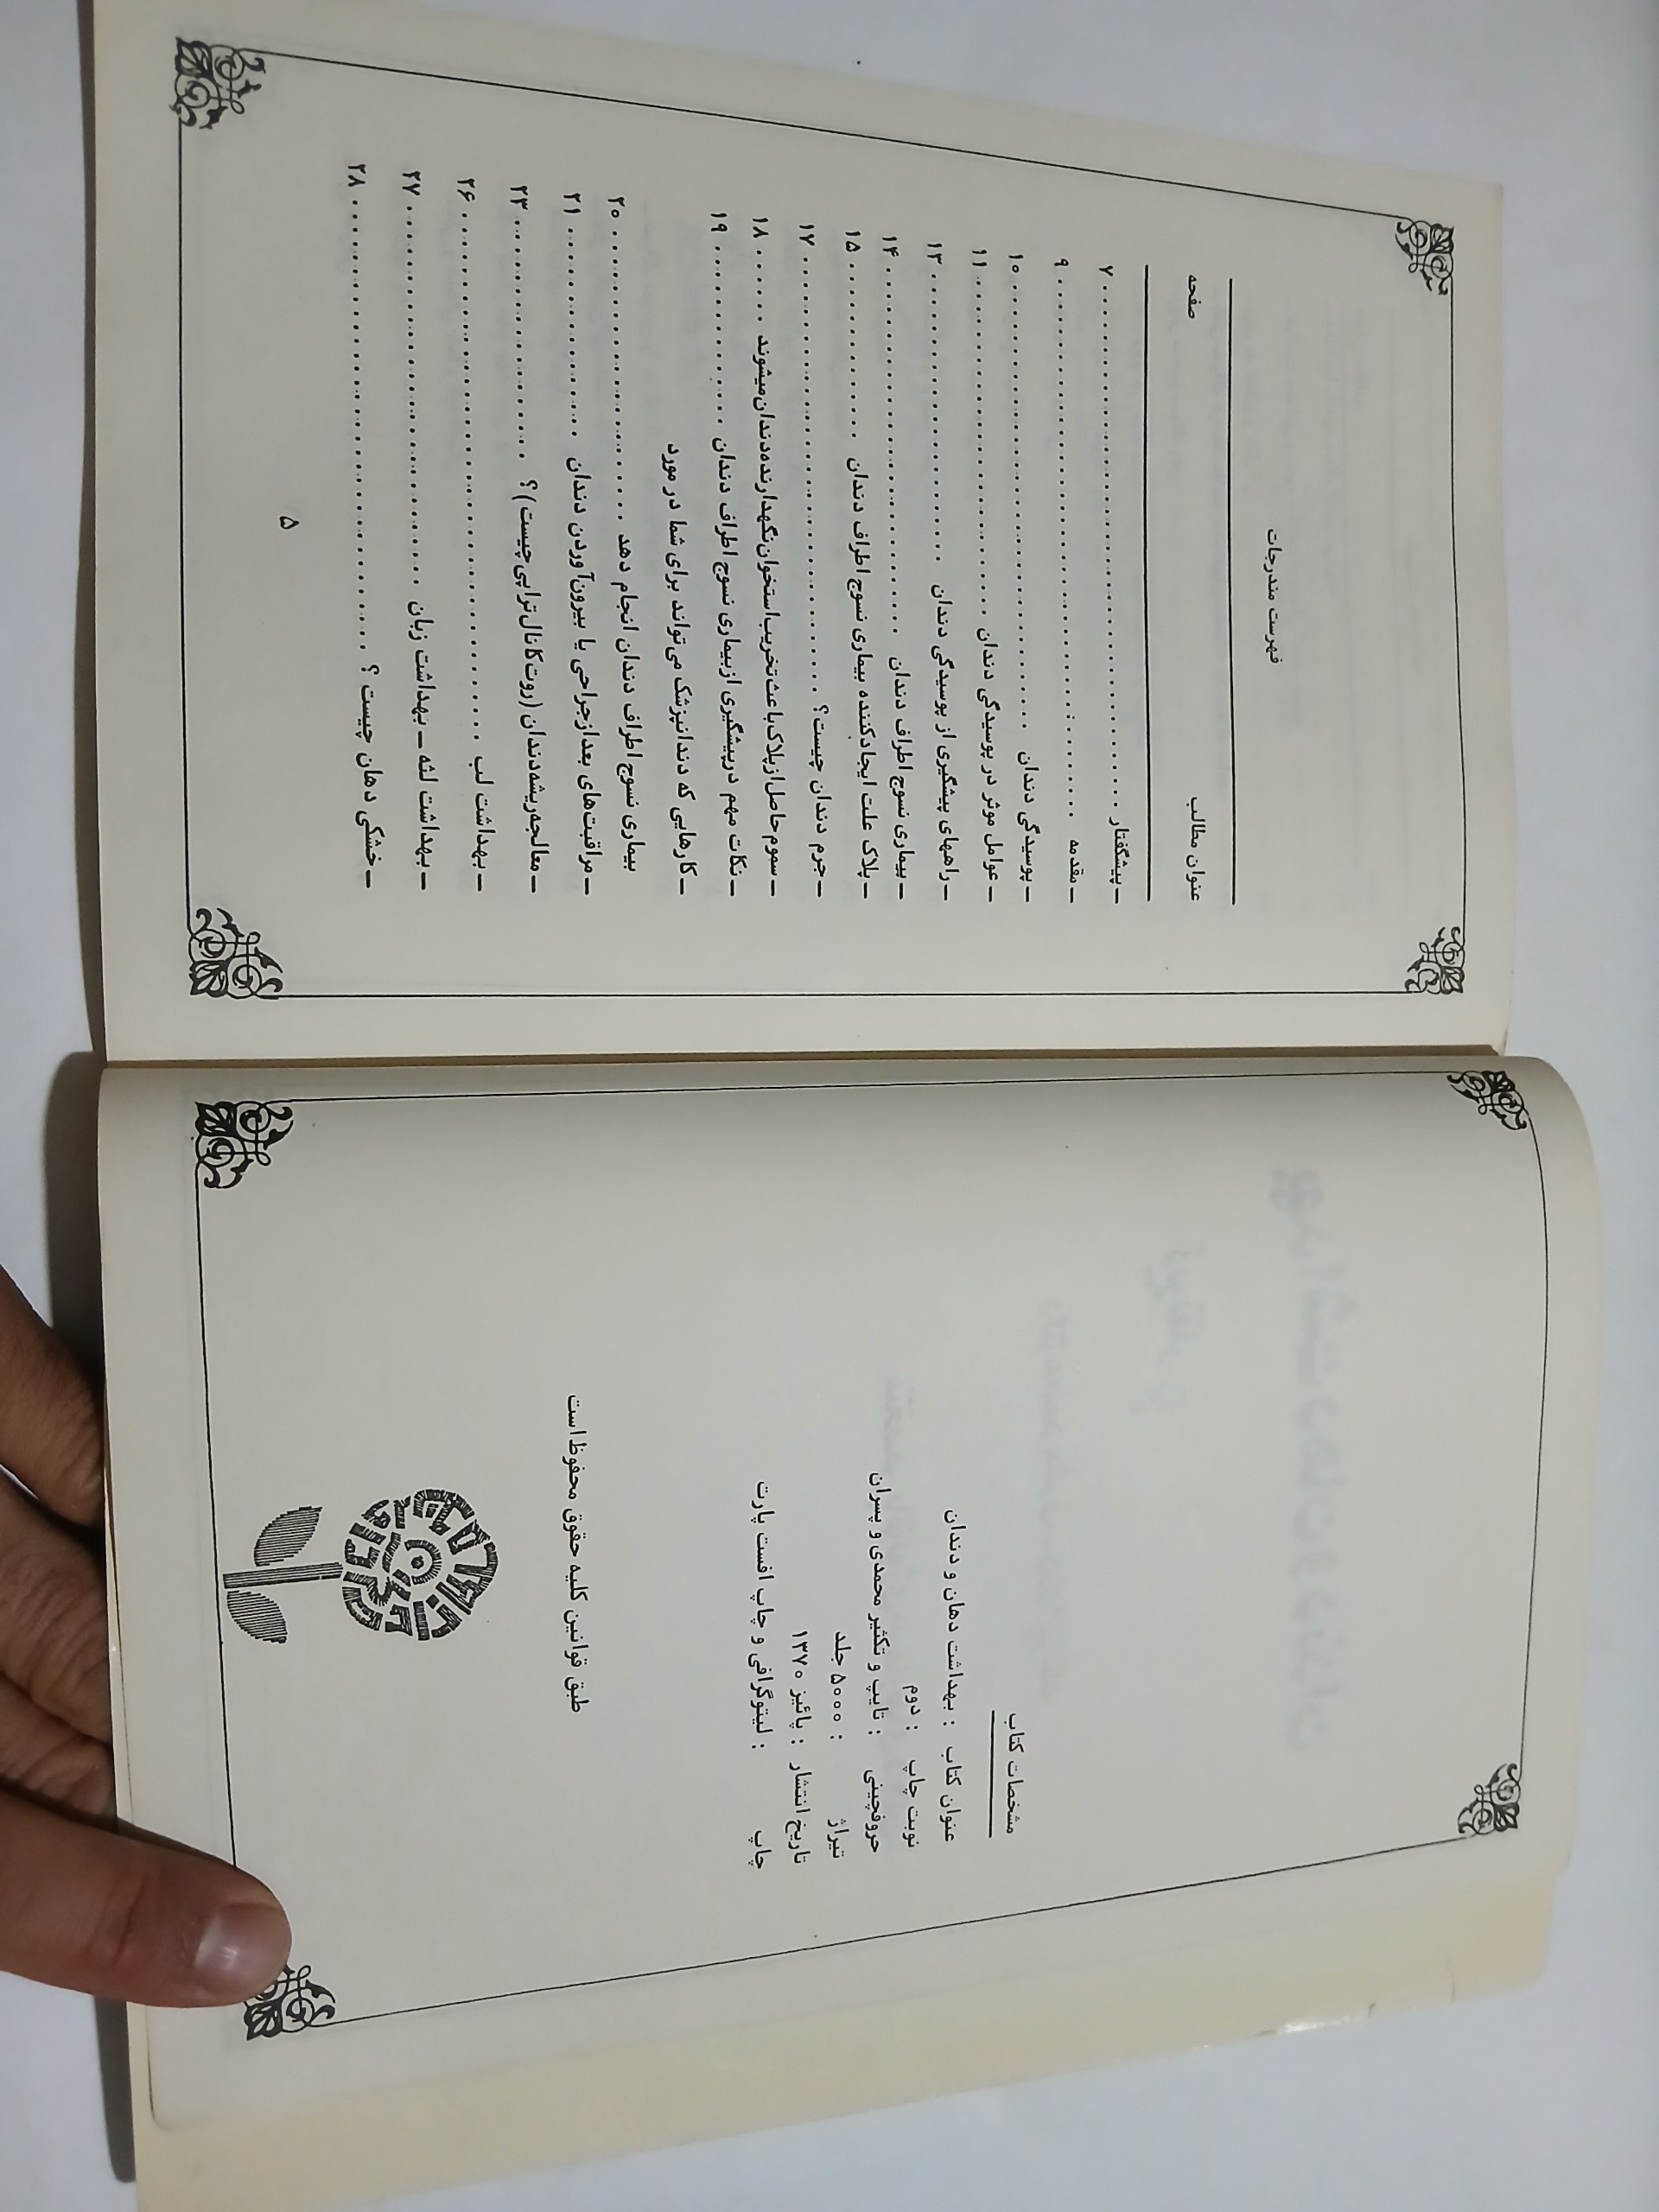 مشخصات کتاب
عنوان کتاب : بهداشت دهان و دندان
نوبت چاپ : دوم
حروفچینی : تایپ و تکثیر محمدی و پسران
تیراژ : ۵۰۰۰ جلد
تاریخ انتشار : پائیز ۱۳۷۰
چاپ : لیتوگرافی و چاپ افست پارت
طبق قوانین کلیه حقوق محفوظ است
فهرست مندرجات
عنوان مطالب صفحه
ـ پیشگفتار ........ ۷
ـ مقدمه ........ ۹
ـ پوسیدگی دندان ........ ۱۰
ـ عوامل موثر در پوسیدگی دندان ........ ۱۱
ـ راههای پیشگیری از پوسیدگی دندان ........ ۱۳
ـ بیماری نسوج اطراف دندان ........ ۱۴
ـ پلاک علت ایجادکننده بیماری نسوج اطراف دندان ........ ۱۵
ـ جرم دندان چیست؟ ........ ۱۷
ـ سموم حاصل از پلاک باعث تخریب استخوان نگهدارنده دندان میشوند ........ ۱۸
ـ نکات مهم در پیشگیری از بیماری نسوج اطراف دندان ........ ۱۹
ـ کارهایی که دندانپزشک می‌تواند برای شما در مورد
بیماری نسوج اطراف دندان انجام دهد ........ ۲۰
ـ مراقبت‌های بعد از جراحی یا بیرون آوردن دندان ........ ۲۱
ـ معالجه ریشه دندان (روت کانال تراپی چیست)؟ ........ ۲۳
ـ بهداشت لب ........ ۲۶
ـ بهداشت لثه ـ بهداشت زبان ........ ۲۷
ـ خشکی دهان چیست ؟ ........ ۲۸
۵